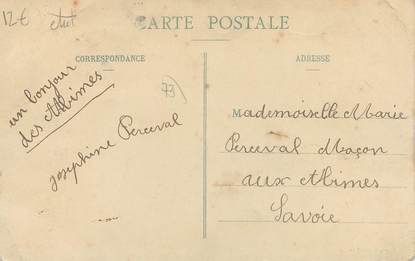 12€
CARTE POSTALE
CORRESPONDANCE
ADRESSE
73
un bonjour
des Abimes
Josephine Perceval
Mademoiselle Marie
Perceval Maçon
aux Abimes
Savoie